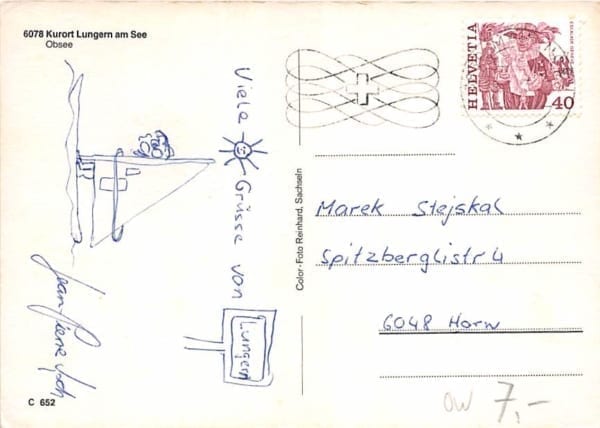 6078 Kurort Lungern am See
Obsee
Viele Grüsse von
Lungern
Jean Pierre
C 652
Color-Foto Reinhard, Sachseln
HELVETIA
40
Marek Stejskal
Spitzberglistr 4
6048 Horw
OW 7,-